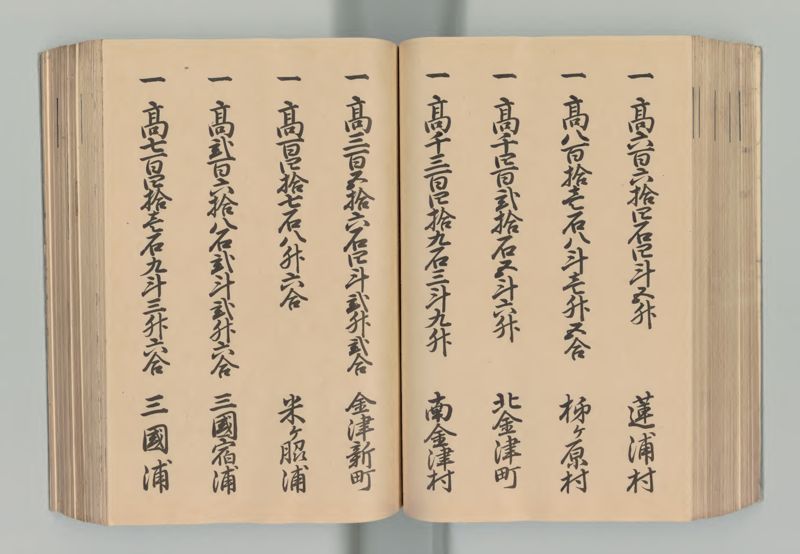 一 高六百六拾四石四斗五升 蓮浦村
一 高八百拾壱石八斗壱升五合 柿ヶ原村
一 高千四百弐拾石五斗六升 北金津町
一 高千三百四拾九石三斗九升 南金津村
一 高三百五拾六石四斗弐升弐合 金津新町
一 高百四拾七石八升六合 米ヶ脇浦
一 高弐百六拾八石弐斗弐升六合 三國宿浦
一 高七百四拾壱石九斗三升六合 三國浦